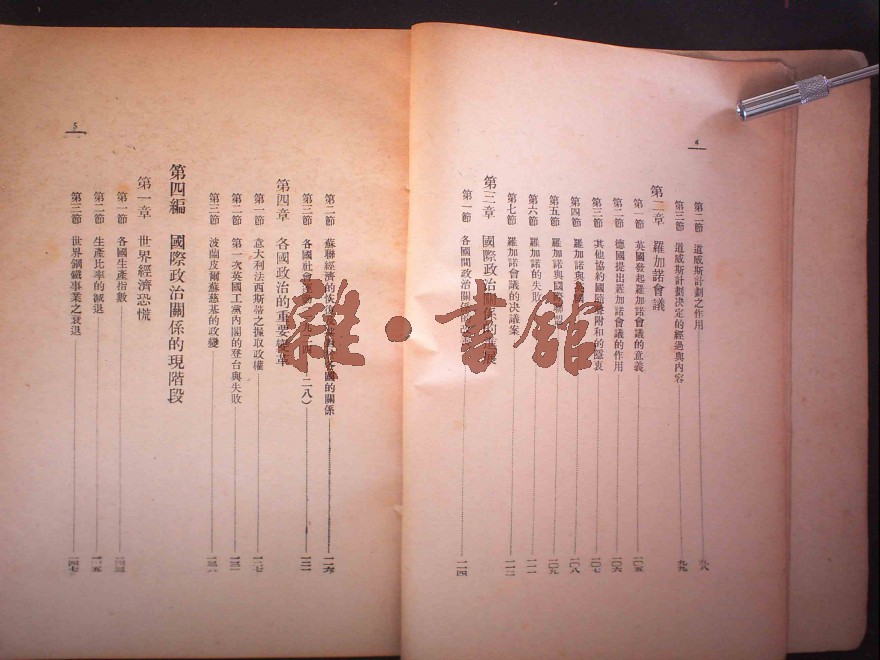 4
第二節 道威斯計劃之作用 九八
第三節 道威斯計劃决定的經過與內容 九九
第二章 羅加諾會議
第一節 英國發起羅加諾會議的意義 一〇五
第二節 德國提出羅加諾會議的作用 一〇六
第三節 其他協約國隨聲附和的隱衷 一〇七
第四節 羅加諾與 一〇八
第五節 羅加諾與國 一〇九
第六節 羅加諾的失敗 一一一
第七節 羅加諾會議的决議案 一一二
第三章 國際政治關係的 展
第一節 各國間政治關 一一四
5
第二節 蘇聯經濟的恢復 國的關係 一一六
第三節 各國社會 二八) 一二一
第四章 各國政治的重要變革
第一節 意大利法西斯蒂之握取政權 一二七
第二節 第一次英國工黨內閣的登台與失敗 一三一
第三節 波蘭皮爾蘇慈基的政變 一三六
第四編 國際政治關係的現階段
第一章 世界經濟恐慌
第一節 各國生產指數 一四三
第二節 生產比率的減退 一四五
第三節 世界鋼鐵事業之衰退 一四七
雜·書館